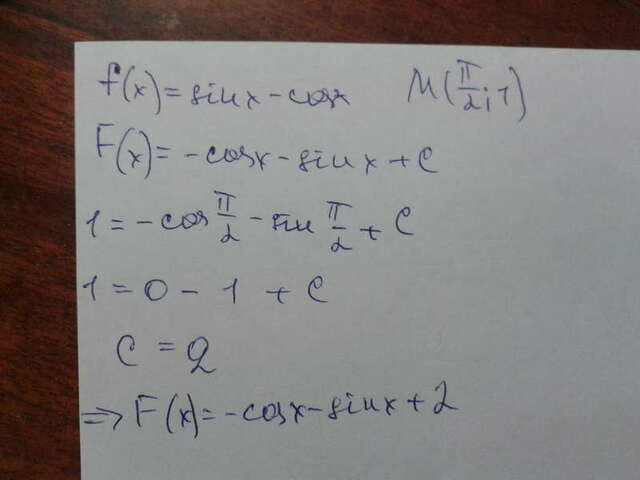 f(x)=sinx-cosx M(π/2;1)
F(x)=-cosx-sinx+C
1=-cos π/2 - sin π/2 + C
1=0-1+C
C=2
⇒F(x)=-cosx-sinx+2